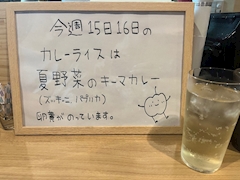 今週15日16日の
カレーライスは
夏野菜のキーマカレー
(ズッキーニ、パプリカ)
卵黄がのっています。